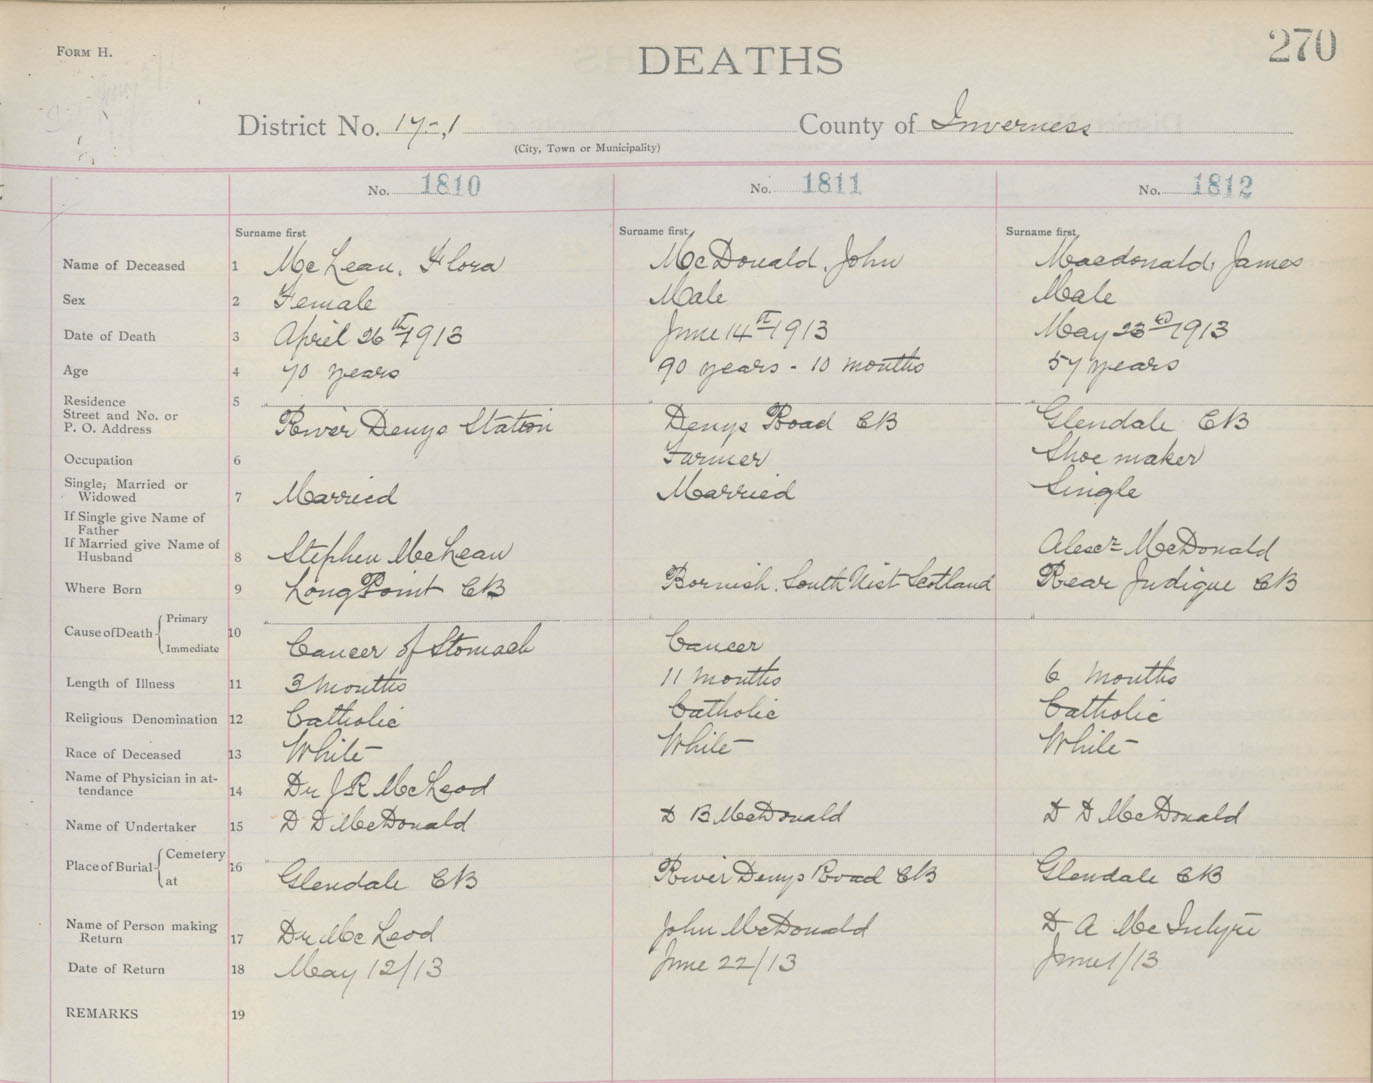 FORM H.
DEATHS
270
District No. 17-,1
County of Inverness
(City, Town or Municipality)
No. 1810
No. 1811
No. 1812
Surname first
Surname first
Surname first
Name of Deceased 1 McLean, Flora McDonald, John Macdonald, James
Sex 2 Female Male Male
Date of Death 3 April 26th 1913 June 14th 1913 May 23rd 1913
Age 4 70 years 90 years - 10 months 57 years
Residence 5
Street and No. or
P. O. Address River Denys Station Denys Road CB Glendale CB
Occupation 6 Farmer Shoe maker
Single, Married or
Widowed 7 Married Married Single
If Single give Name of
Father
If Married give Name of
Husband 8 Stephen McLean Alexr McDonald
Where Born 9 Long Point CB Bornish, South Uist Scotland Rear Judique CB
Cause of Death Primary 10
Immediate Cancer of Stomach Cancer
Length of Illness 11 3 months 11 months 6 months
Religious Denomination 12 Catholic Catholic Catholic
Race of Deceased 13 White White White
Name of Physician in at-
tendance 14 Dr J R McLeod
Name of Undertaker 15 D D McDonald D B McDonald D D McDonald
Place of Burial Cemetery 16
at Glendale CB River Denys Road CB Glendale CB
Name of Person making
Return 17 Dr McLeod John McDonald D A McIntyre
Date of Return 18 May 12/13 June 22/13 June 1/13
REMARKS 19